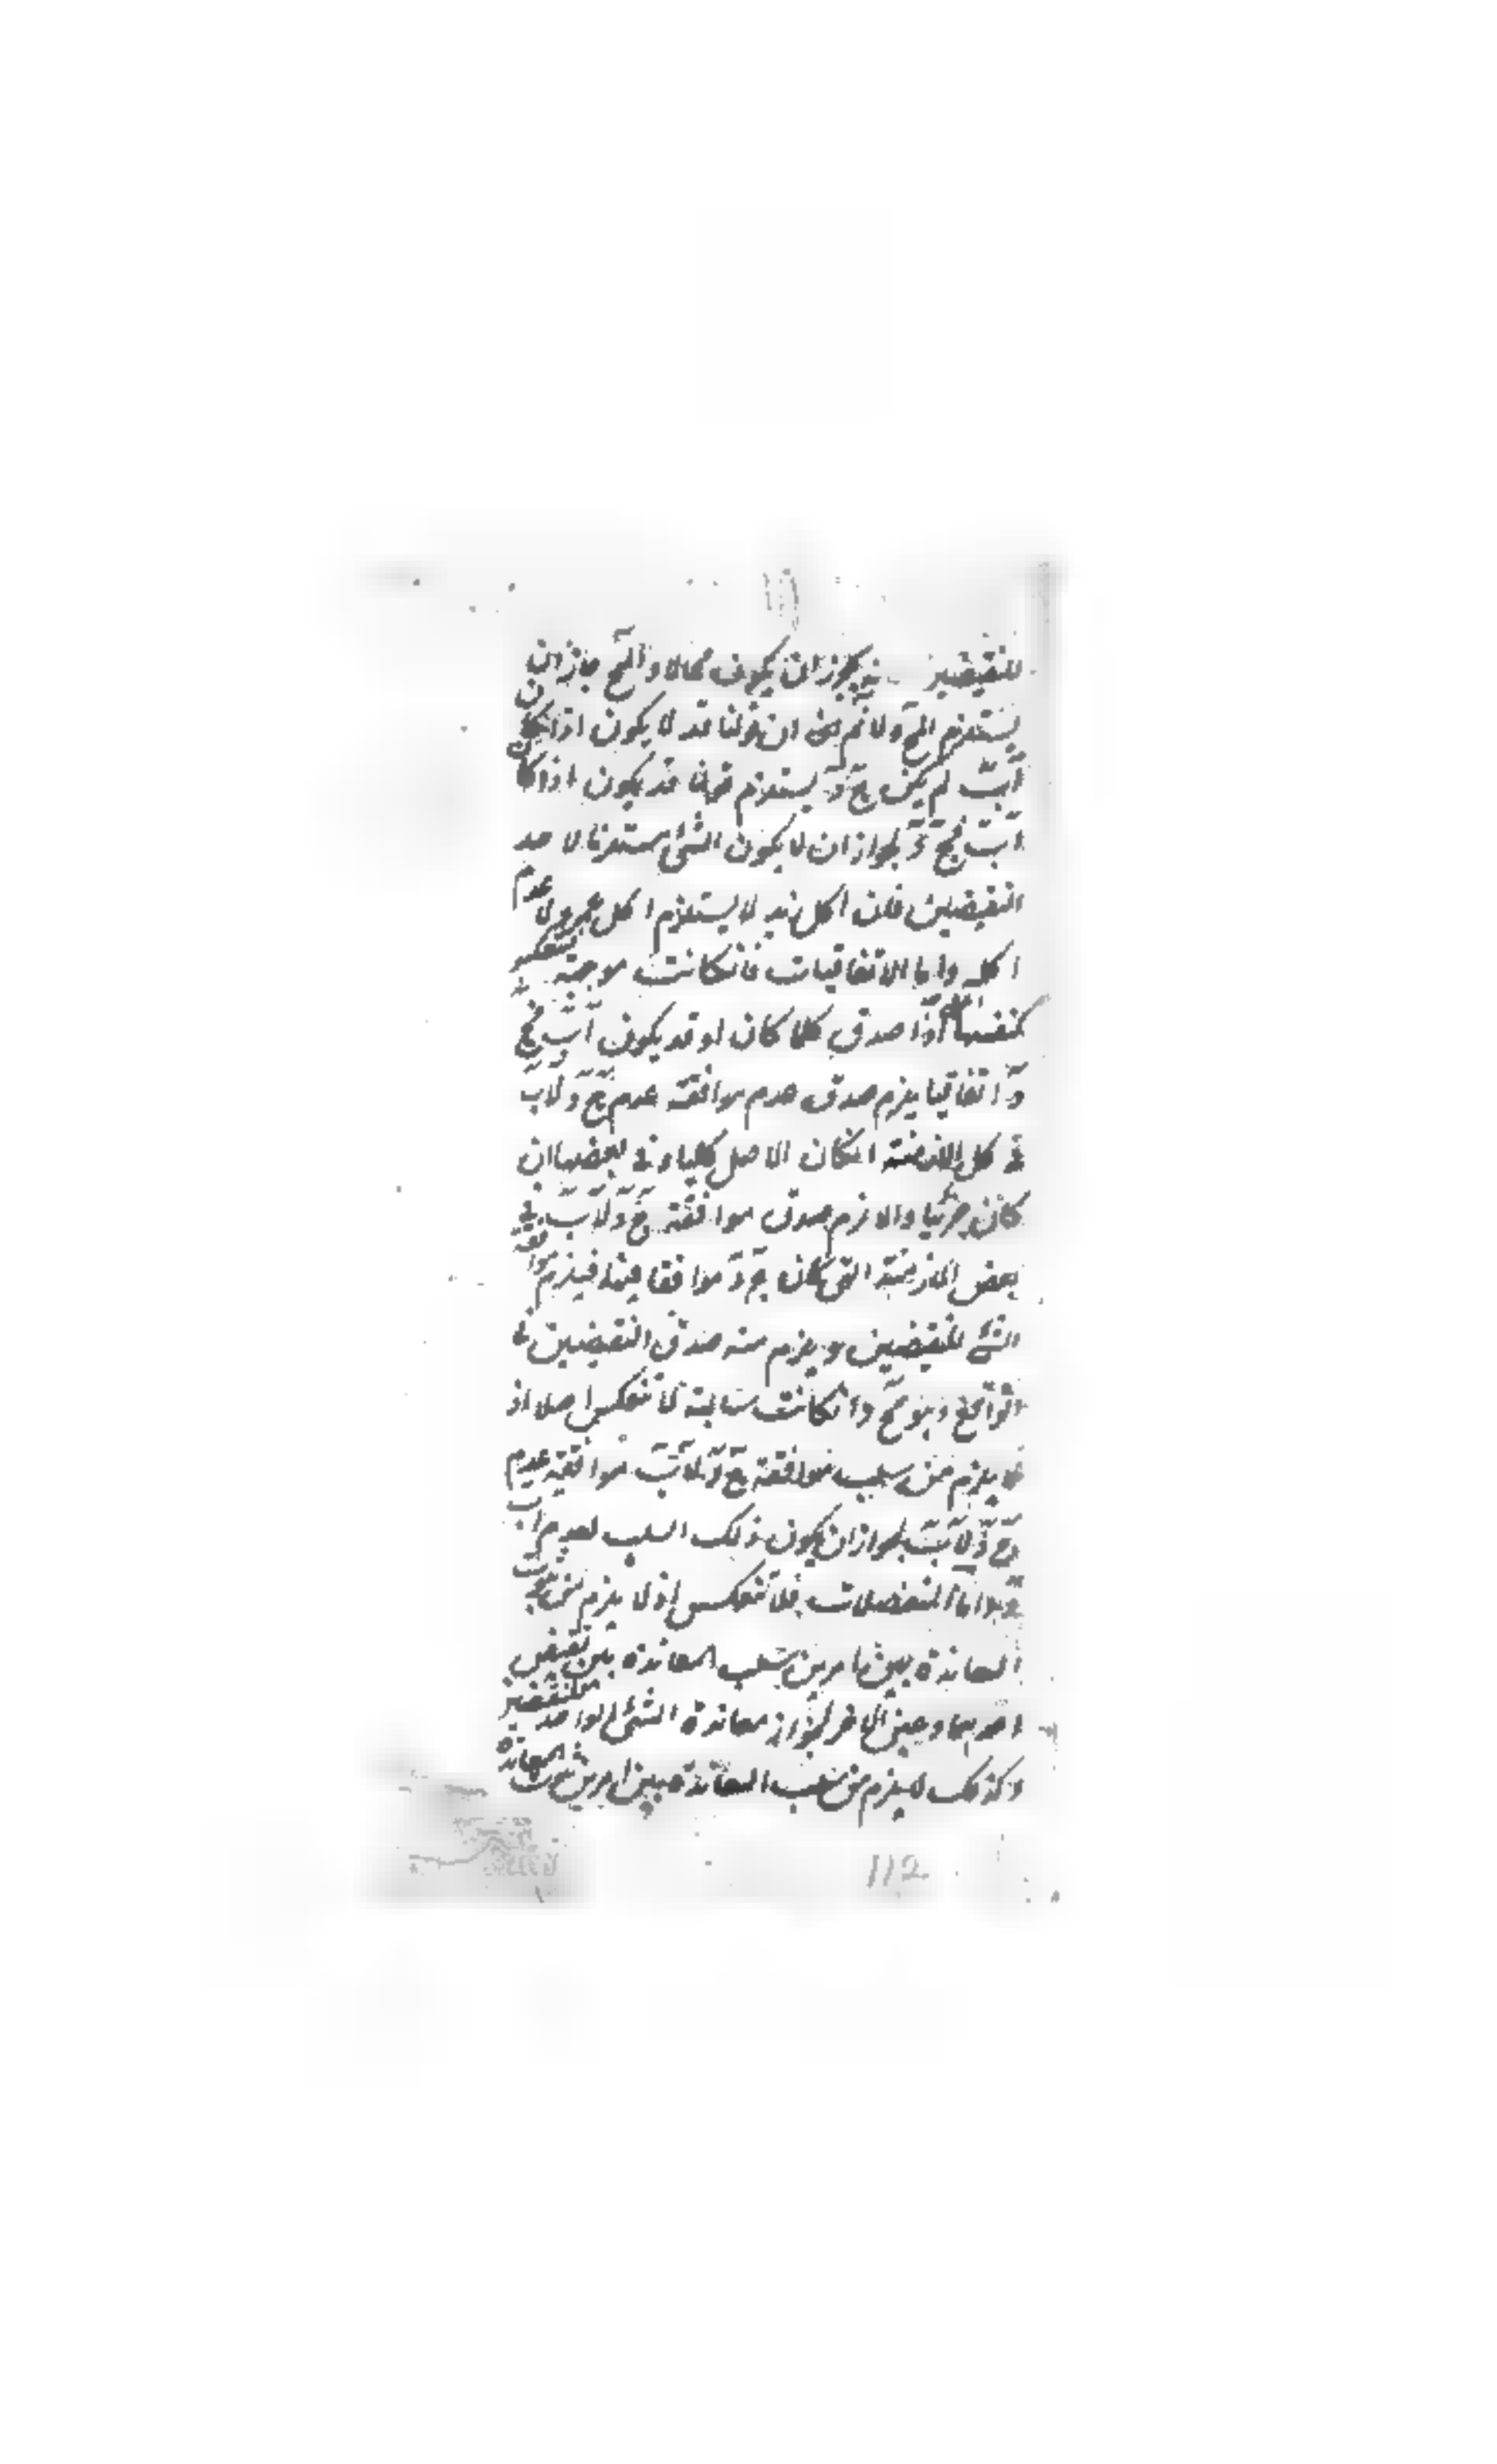 للنقيضين يجوز ان يكون محالا والمح جاز ان
يستلزم المح ولانم ان قولنا قد لا يكون اذا كان
اب لم يكن ج د يستلزم قولنا قد يكون اذا كان
اب فج د لجواز ان لا يكون الشئ مستلزما لاحد
النقيضين فان اكل زيد لا يستلزم اكل عمرو ولا عدم
اكله واما الاتفاقيات فانكانت موجبة
كنفسها اذا صدق كلما كان او قد يكون اب فج
د اتفاقيا يلزم صدق عدم موافقة عدم ج د لاب
في كل الازمنة انكان الاصل كليا وفي بعضها ان
كان جزئيا والا لزم صدق موافقة ج د لاب في
بعض الازمنة التى كان ج د موافقا فيلزم موافقة
الشئ للنقيضين ويلزم منه صدق النقيضين في
الواقع وهو مح وانكانت سالبة لا تنعكس اصلا اذ
لا يلزم من سلب موافقة ج د لاب موافقة عدم
ج د لاب لجواز ان يكون ذلك السلب لعدم اب
واما المنفصلات فلا تنعكس اذ لا يلزم من ثبوت
المعاندة بين امرين سلب المعاندة بين نقيض
احدهما وعين الاخر لجواز معاندة الشئ الواحد للنقيضين
وكذلك لا يلزم من سلب المعاندة بين امرين ثبوت المعاندة
112